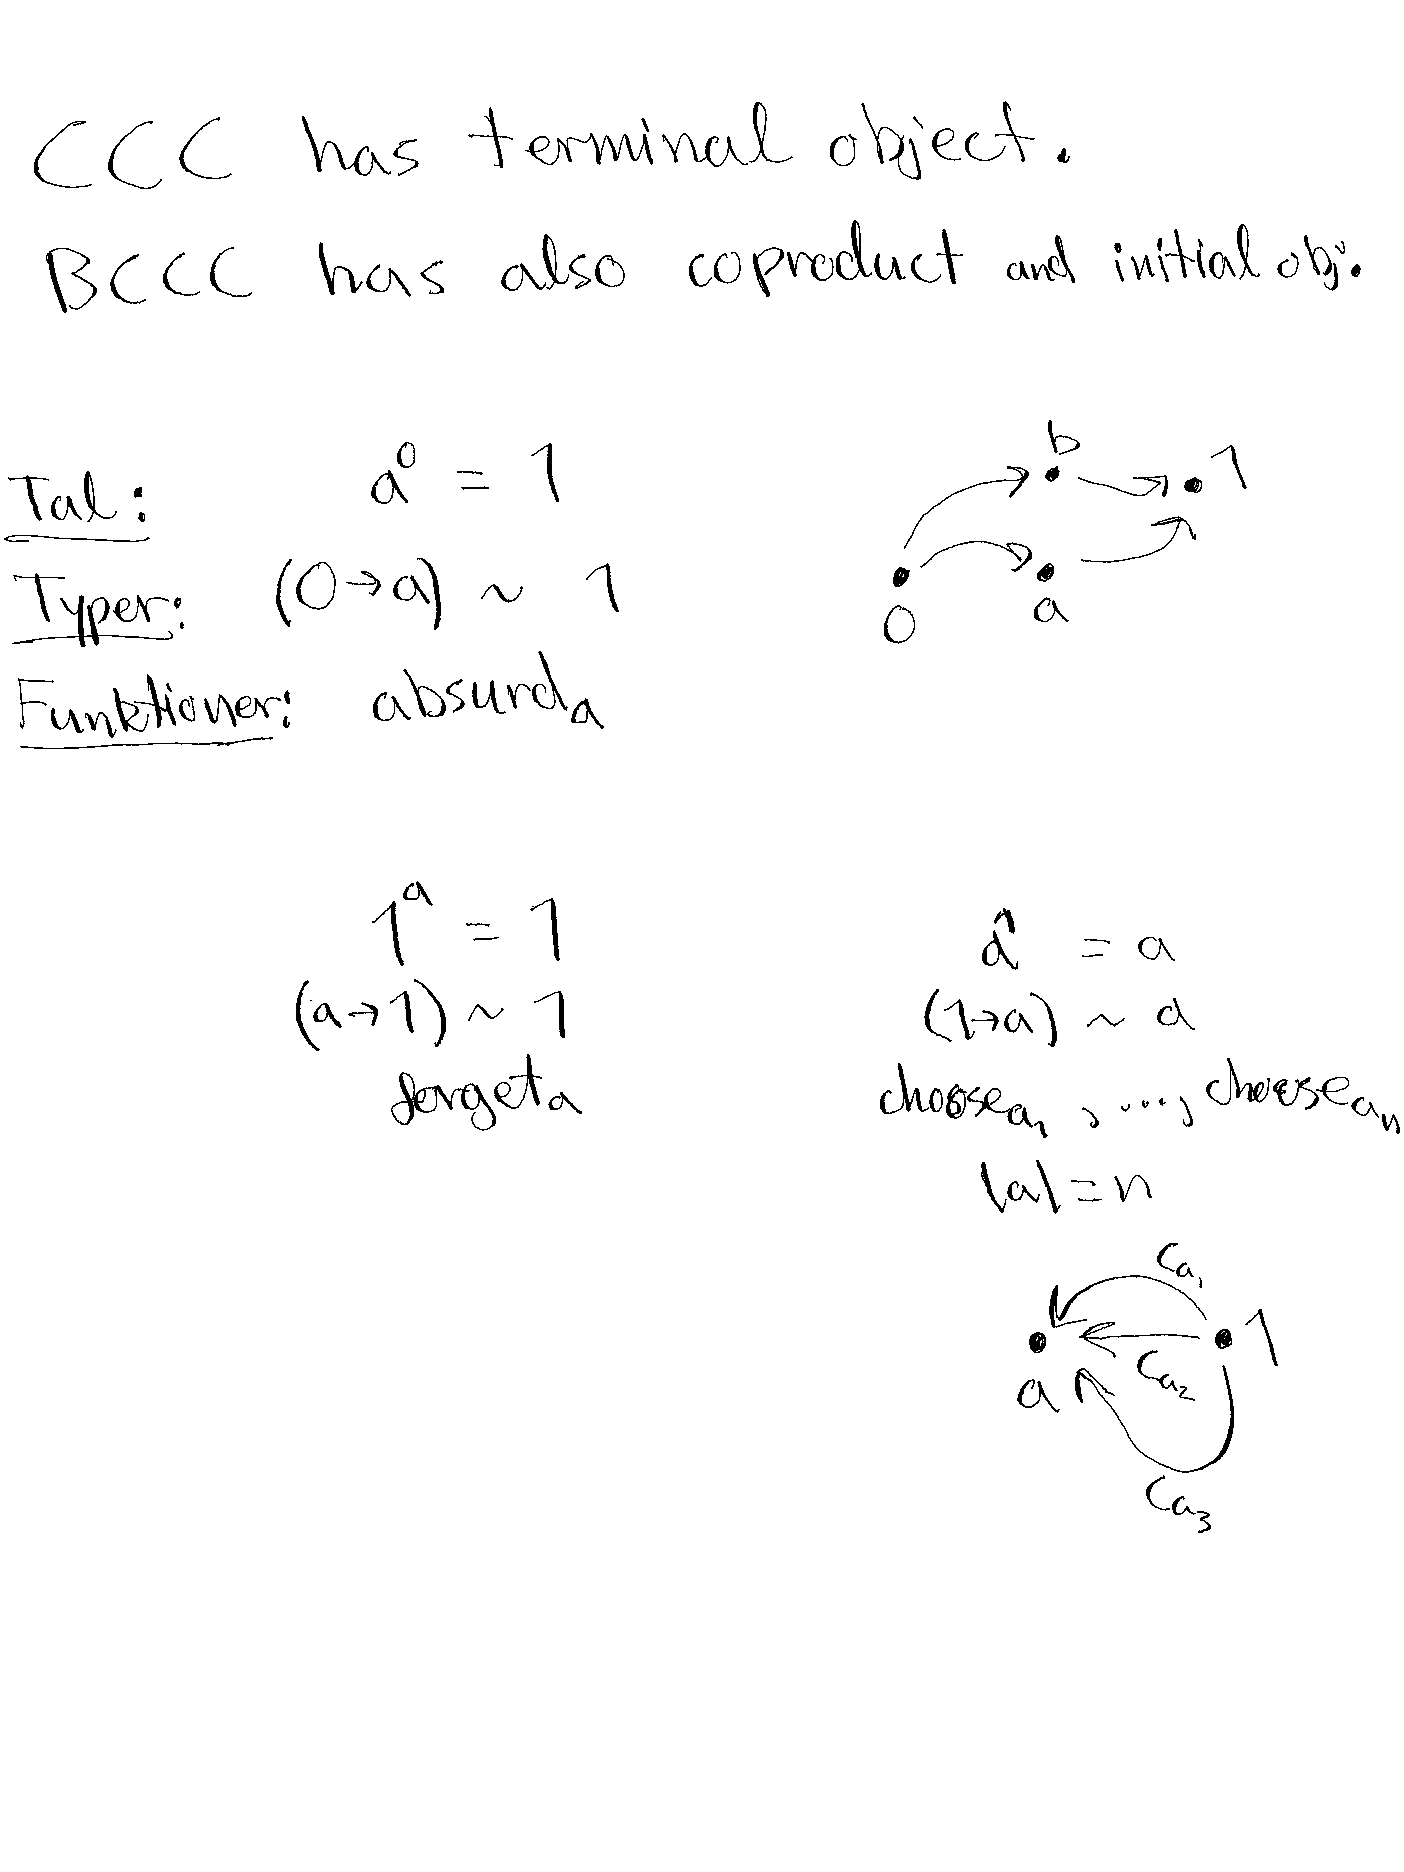 CCC has terminal object.
BCCC has also coproduct and initial obj.
Tal: a⁰ = 1
Typer: (0→a) ~ 1
Funktioner: absurdₐ
b
1
0
a
1ᵃ = 1
(a→1) ~ 1
forgetₐ
a¹ = a
(1→a) ~ a
choose_a₁, ..., choose_aₙ
|a| = n
C_a₁
1
C_a₂
a
C_a₃